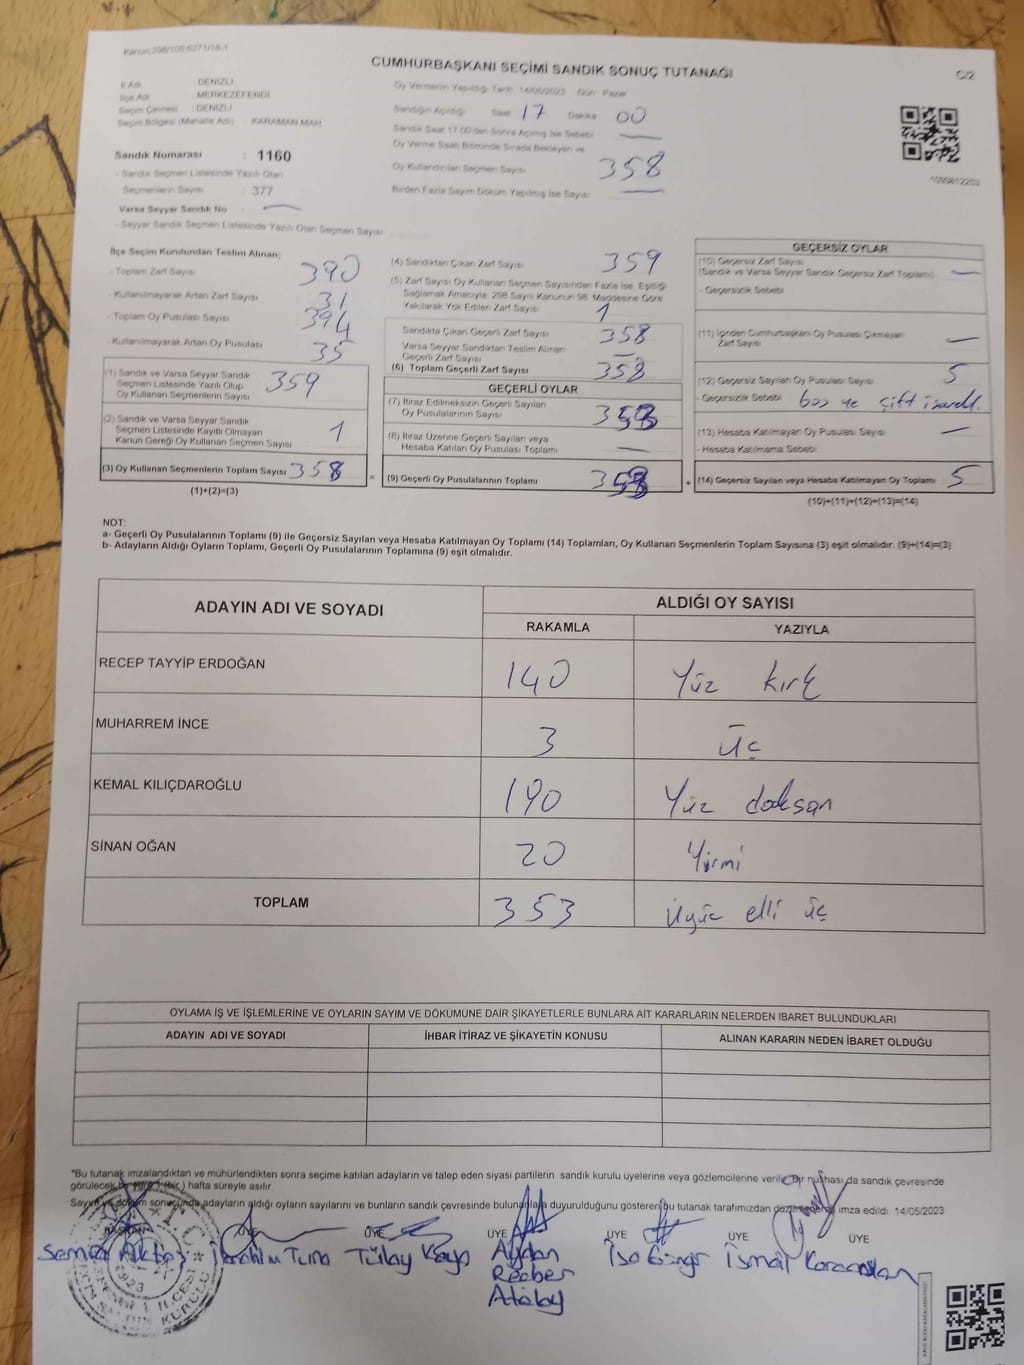 Kanun:298/105-6271/18-1
CUMHURBAŞKANI SEÇİMİ SANDIK SONUÇ TUTANAĞI
C/2
İl Adı : DENİZLİ
İlçe Adı : MERKEZEFENDİ
Seçim Çevresi : DENİZLİ
Seçim Bölgesi (Mahalle Adı) : KARAMAN MAH
Sandık Numarası : 1160
- Sandık Seçmen Listesinde Yazılı Olan
Seçmenlerin Sayısı : 377
Varsa Seyyar Sandık No : —
- Seyyar Sandık Seçmen Listesinde Yazılı Olan Seçmen Sayısı
Oy Vermenin Yapıldığı Tarih : 14/05/2023 Gün : Pazar
Sandığın Açıldığı Saat 17 Dakika 00
Sandık Saat 17.00'den Sonra Açılmış İse Sebebi : —
Oy Verme Saati Bitiminde Sırada Bekleyen ve
Oy Kullandırılan Seçmen Sayısı 358
Birden Fazla Sayım Döküm Yapılmış İse Sayısı : —
İlçe Seçim Kurulundan Teslim Alınan;
- Toplam Zarf Sayısı 390
- Kullanılmayarak Artan Zarf Sayısı 31
- Toplam Oy Pusulası Sayısı 394
- Kullanılmayarak Artan Oy Pusulası 35
(1) Sandık ve Varsa Seyyar Sandık
Seçmen Listesinde Yazılı Olup
Oy Kullanan Seçmenlerin Sayısı 359
(2) Sandık ve Varsa Seyyar Sandık
Seçmen Listesinde Kayıtlı Olmayan
Kanun Gereği Oy Kullanan Seçmen Sayısı 1
(3) Oy Kullanan Seçmenlerin Toplam Sayısı 358
(1)+(2)=(3)
(4) Sandıktan Çıkan Zarf Sayısı 359
(5) Zarf Sayısı Oy Kullanan Seçmen Sayısından Fazla İse, Eşitliği
Sağlamak Amacıyla, 298 Sayılı Kanunun 98. Maddesine Göre
Yakılarak Yok Edilen Zarf Sayısı 1
Sandıkta Çıkan Geçerli Zarf Sayısı 358
Varsa Seyyar Sandıktan Teslim Alınan
Geçerli Zarf Sayısı —
(6) Toplam Geçerli Zarf Sayısı 358
GEÇERLİ OYLAR
(7) İtiraz Edilmeksizin Geçerli Sayılan
Oy Pusulalarının Sayısı
(8) İtiraz Üzerine Geçerli Sayılan veya
Hesaba Katılan Oy Pusulası Toplamı —
= (9) Geçerli Oy Pusulalarının Toplamı
GEÇERSİZ OYLAR
(10) Geçersiz Zarf Sayısı
(Sandık ve Varsa Seyyar Sandık Geçersiz Zarf Toplamı) —
- Geçersizlik Sebebi
(11) İçinden Cumhurbaşkanı Oy Pusulası Çıkmayan
Zarf Sayısı —
(12) Geçersiz Sayılan Oy Pusulası Sayısı 5
- Geçersizlik Sebebi boş ve çift
(13) Hesaba Katılmayan Oy Pusulası Sayısı —
- Hesaba Katılmama Sebebi
+ (14) Geçersiz Sayılan veya Hesaba Katılmayan Oy Toplamı 5
(10)+(11)+(12)+(13)=(14)
NOT:
a- Geçerli Oy Pusulalarının Toplamı (9) ile Geçersiz Sayılan veya Hesaba Katılmayan Oy Toplamı (14) Toplamları, Oy Kullanan Seçmenlerin Toplam Sayısına (3) eşit olmalıdır. (9)+(14)=(3)
b- Adayların Aldığı Oyların Toplamı, Geçerli Oy Pusulalarının Toplamına (9) eşit olmalıdır.
ADAYIN ADI VE SOYADI ALDIĞI OY SAYISI
RAKAMLA YAZIYLA
RECEP TAYYİP ERDOĞAN 140 Yüz kırk
MUHARREM İNCE 3 üç
KEMAL KILIÇDAROĞLU 190 Yüz doksan
SİNAN OĞAN 20 Yirmi
TOPLAM 353 üçyüz elli üç
OYLAMA İŞ VE İŞLEMLERİNE VE OYLARIN SAYIM VE DÖKÜMÜNE DAİR ŞİKAYETLERLE BUNLARA AİT KARARLARIN NELERDEN İBARET BULUNDUKLARI
ADAYIN ADI VE SOYADI İHBAR İTİRAZ VE ŞİKAYETİN KONUSU ALINAN KARARIN NEDEN İBARET OLDUĞU
*Bu tutanak imzalandıktan ve mühürlendikten sonra seçime katılan adayların ve talep eden siyasi partilerin sandık kurulu üyelerine veya gözlemcilerine verilir. Bir nüshası da sandık çevresinde
görülecek bir yere (bir) hafta süreyle asılır.
Sayım ve döküm sonucunda adayların aldığı oyların sayılarını ve bunların sandık çevresinde bulunanlara duyurulduğunu gösteren bu tutanak tarafımızdan düzenlenerek imza edildi. 14/05/2023
BAŞKAN ÜYE ÜYE ÜYE ÜYE ÜYE ÜYE
İbrahim Tuna Tülay Kaya Aydan İsmail
Atabay